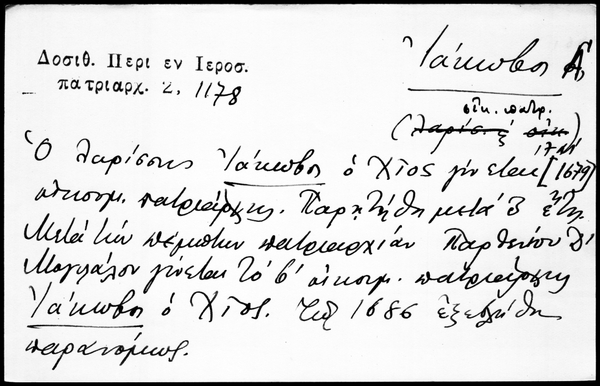 Δοσιθ. Περι εν Ιεροσ.
πατριαρχ. 2, 1178
Ἰάκωβος Α'
οἰκ. πατρ.
(Λαρίσ. ἑ οἰκ)
17 αἰ
Ὁ Λαρίσσης Ἰάκωβος ὁ Χῖος γίνεται [1679]
οἰκουμ. πατριάρχης. Παρῃτήθη μετὰ 3 ἔτη.
Μετὰ τὴν πέμπτην πατριαρχίαν Παρθενίου Δ'
Μογιλάλου γίνεται τὸ β' οἰκουμ. πατριάρχης
Ἰάκωβος ὁ Χῖος. Τῷ 1686 ἐξεβλήθη
παρανόμως.